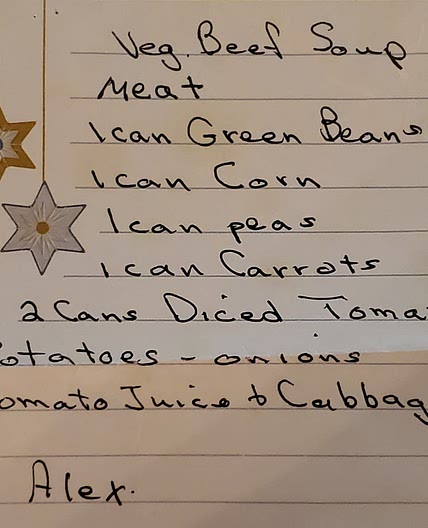 Veg. Beef Soup
Meat
1 can Green Beans
1 can Corn
1 can peas
1 can Carrots
2 Cans Diced Toma
otatoes - onions
omato Juice & Cabbag
Alex.